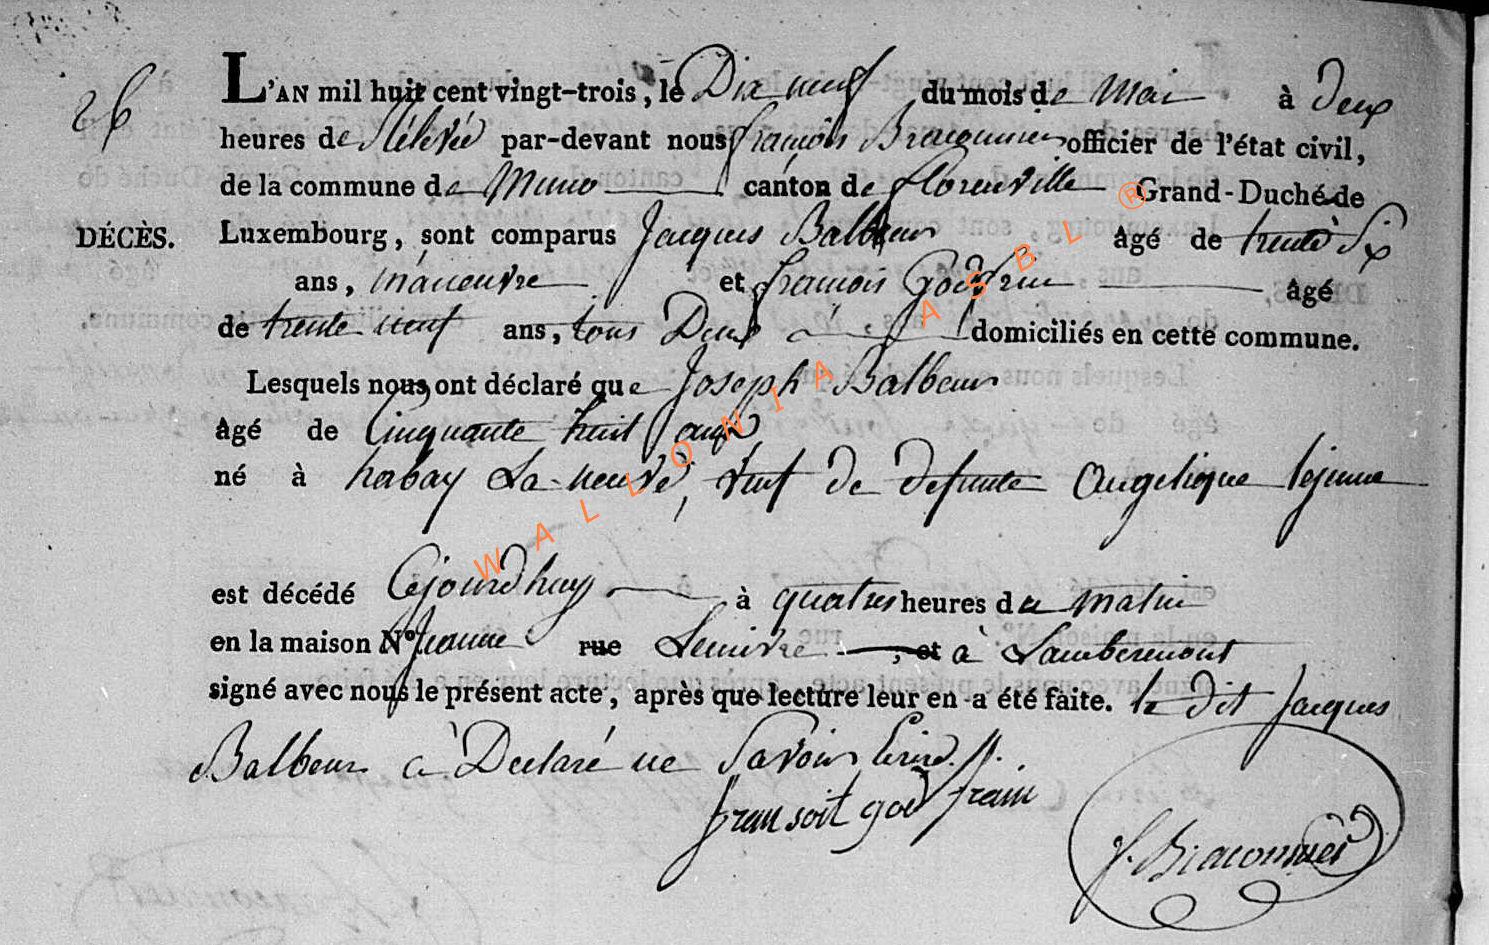 26
L'AN mil huit cent vingt-trois, le Dix neuf du mois de Mai à Deux
heures de Rélévée par-devant nous françois Braconnier officier de l'état civil,
de la commune de Muno canton de florenville Grand-Duché de
DÉCÈS. Luxembourg, sont comparus Jacques Balbeur âgé de trente Six
ans, manoeuvre et françois Godfrin âgé
de trente neuf ans, tous Deux domiciliés en cette commune.
Lesquels nous ont déclaré que Joseph Balbeur
âgé de Cinquante huit ans
né à habay La neuve, veuf de defunte Angelique lejeune
est décédé Cejourdhuy à quatres heures du matin
en la maison N° rue et à Lambermont
signé avec nous le présent acte, après que lecture leur en a été faite. le dit Jacques
Balbeur à Déclaré ne Savoir Ecrire
fransoit godfrain
f. Braconnier
WALLONIA ASBL ®